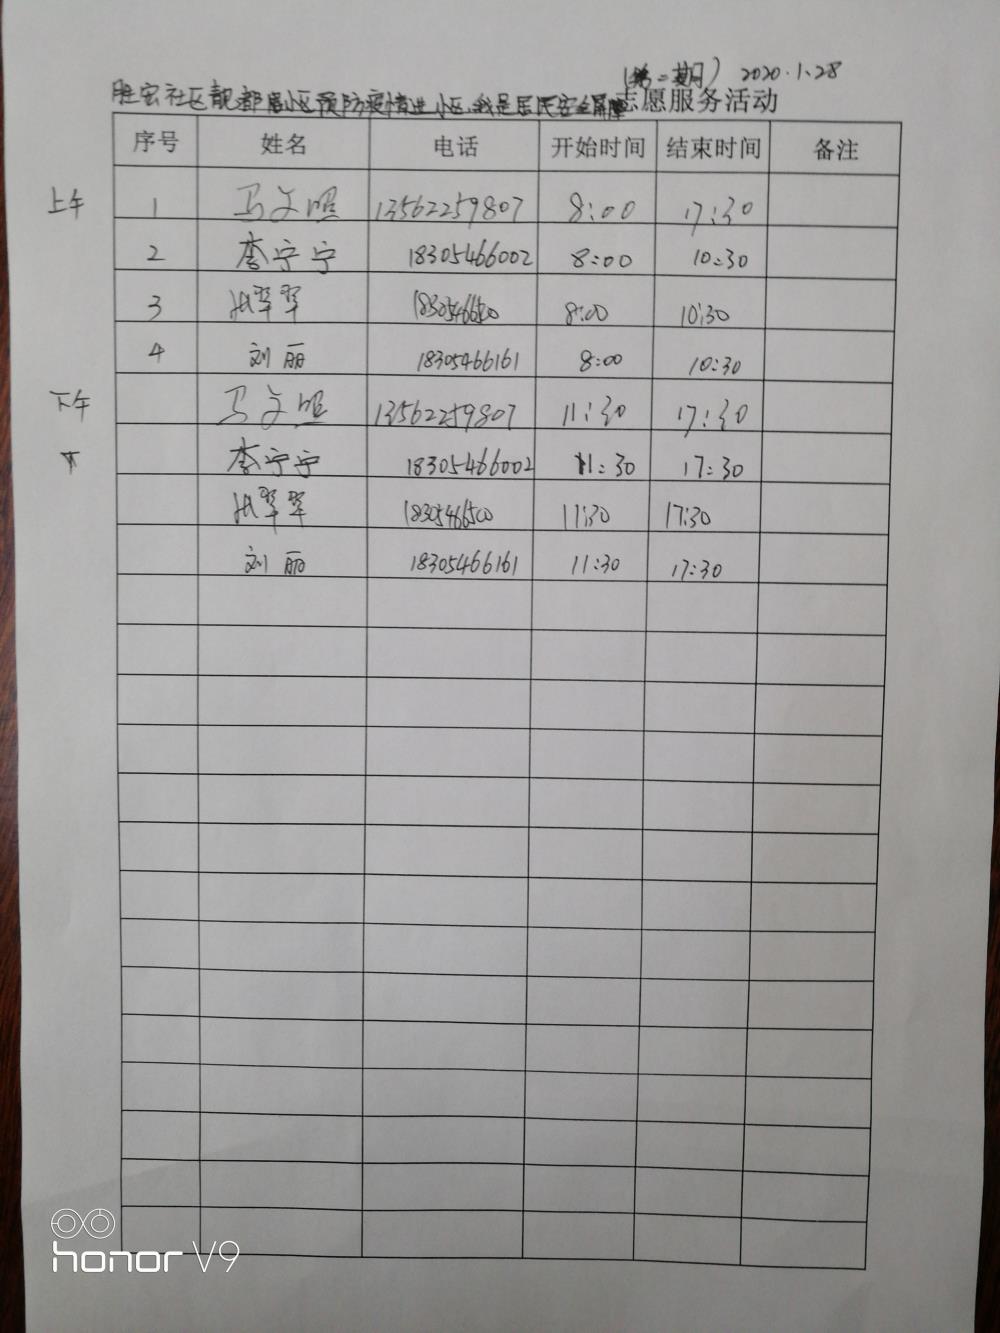 (第二期) 2020.1.28
胜宏社区靓都居小区预防疫情进小区,我是居民安全屏障志愿服务活动
序号 姓名 电话 开始时间 结束时间 备注
上午 1 马文照 13562259807 8:00 17:30
2 李宁宁 18305466002 8:00 10:30
3 翠翠 8:00 10:30
4 刘丽 18305466161 8:00 10:30
下午 马文照 13562259807 11:30 17:30
下 李宁宁 18305466002 11:30 17:30
翠翠 11:30 17:30
刘丽 18305466161 11:30 17:30
honor V9